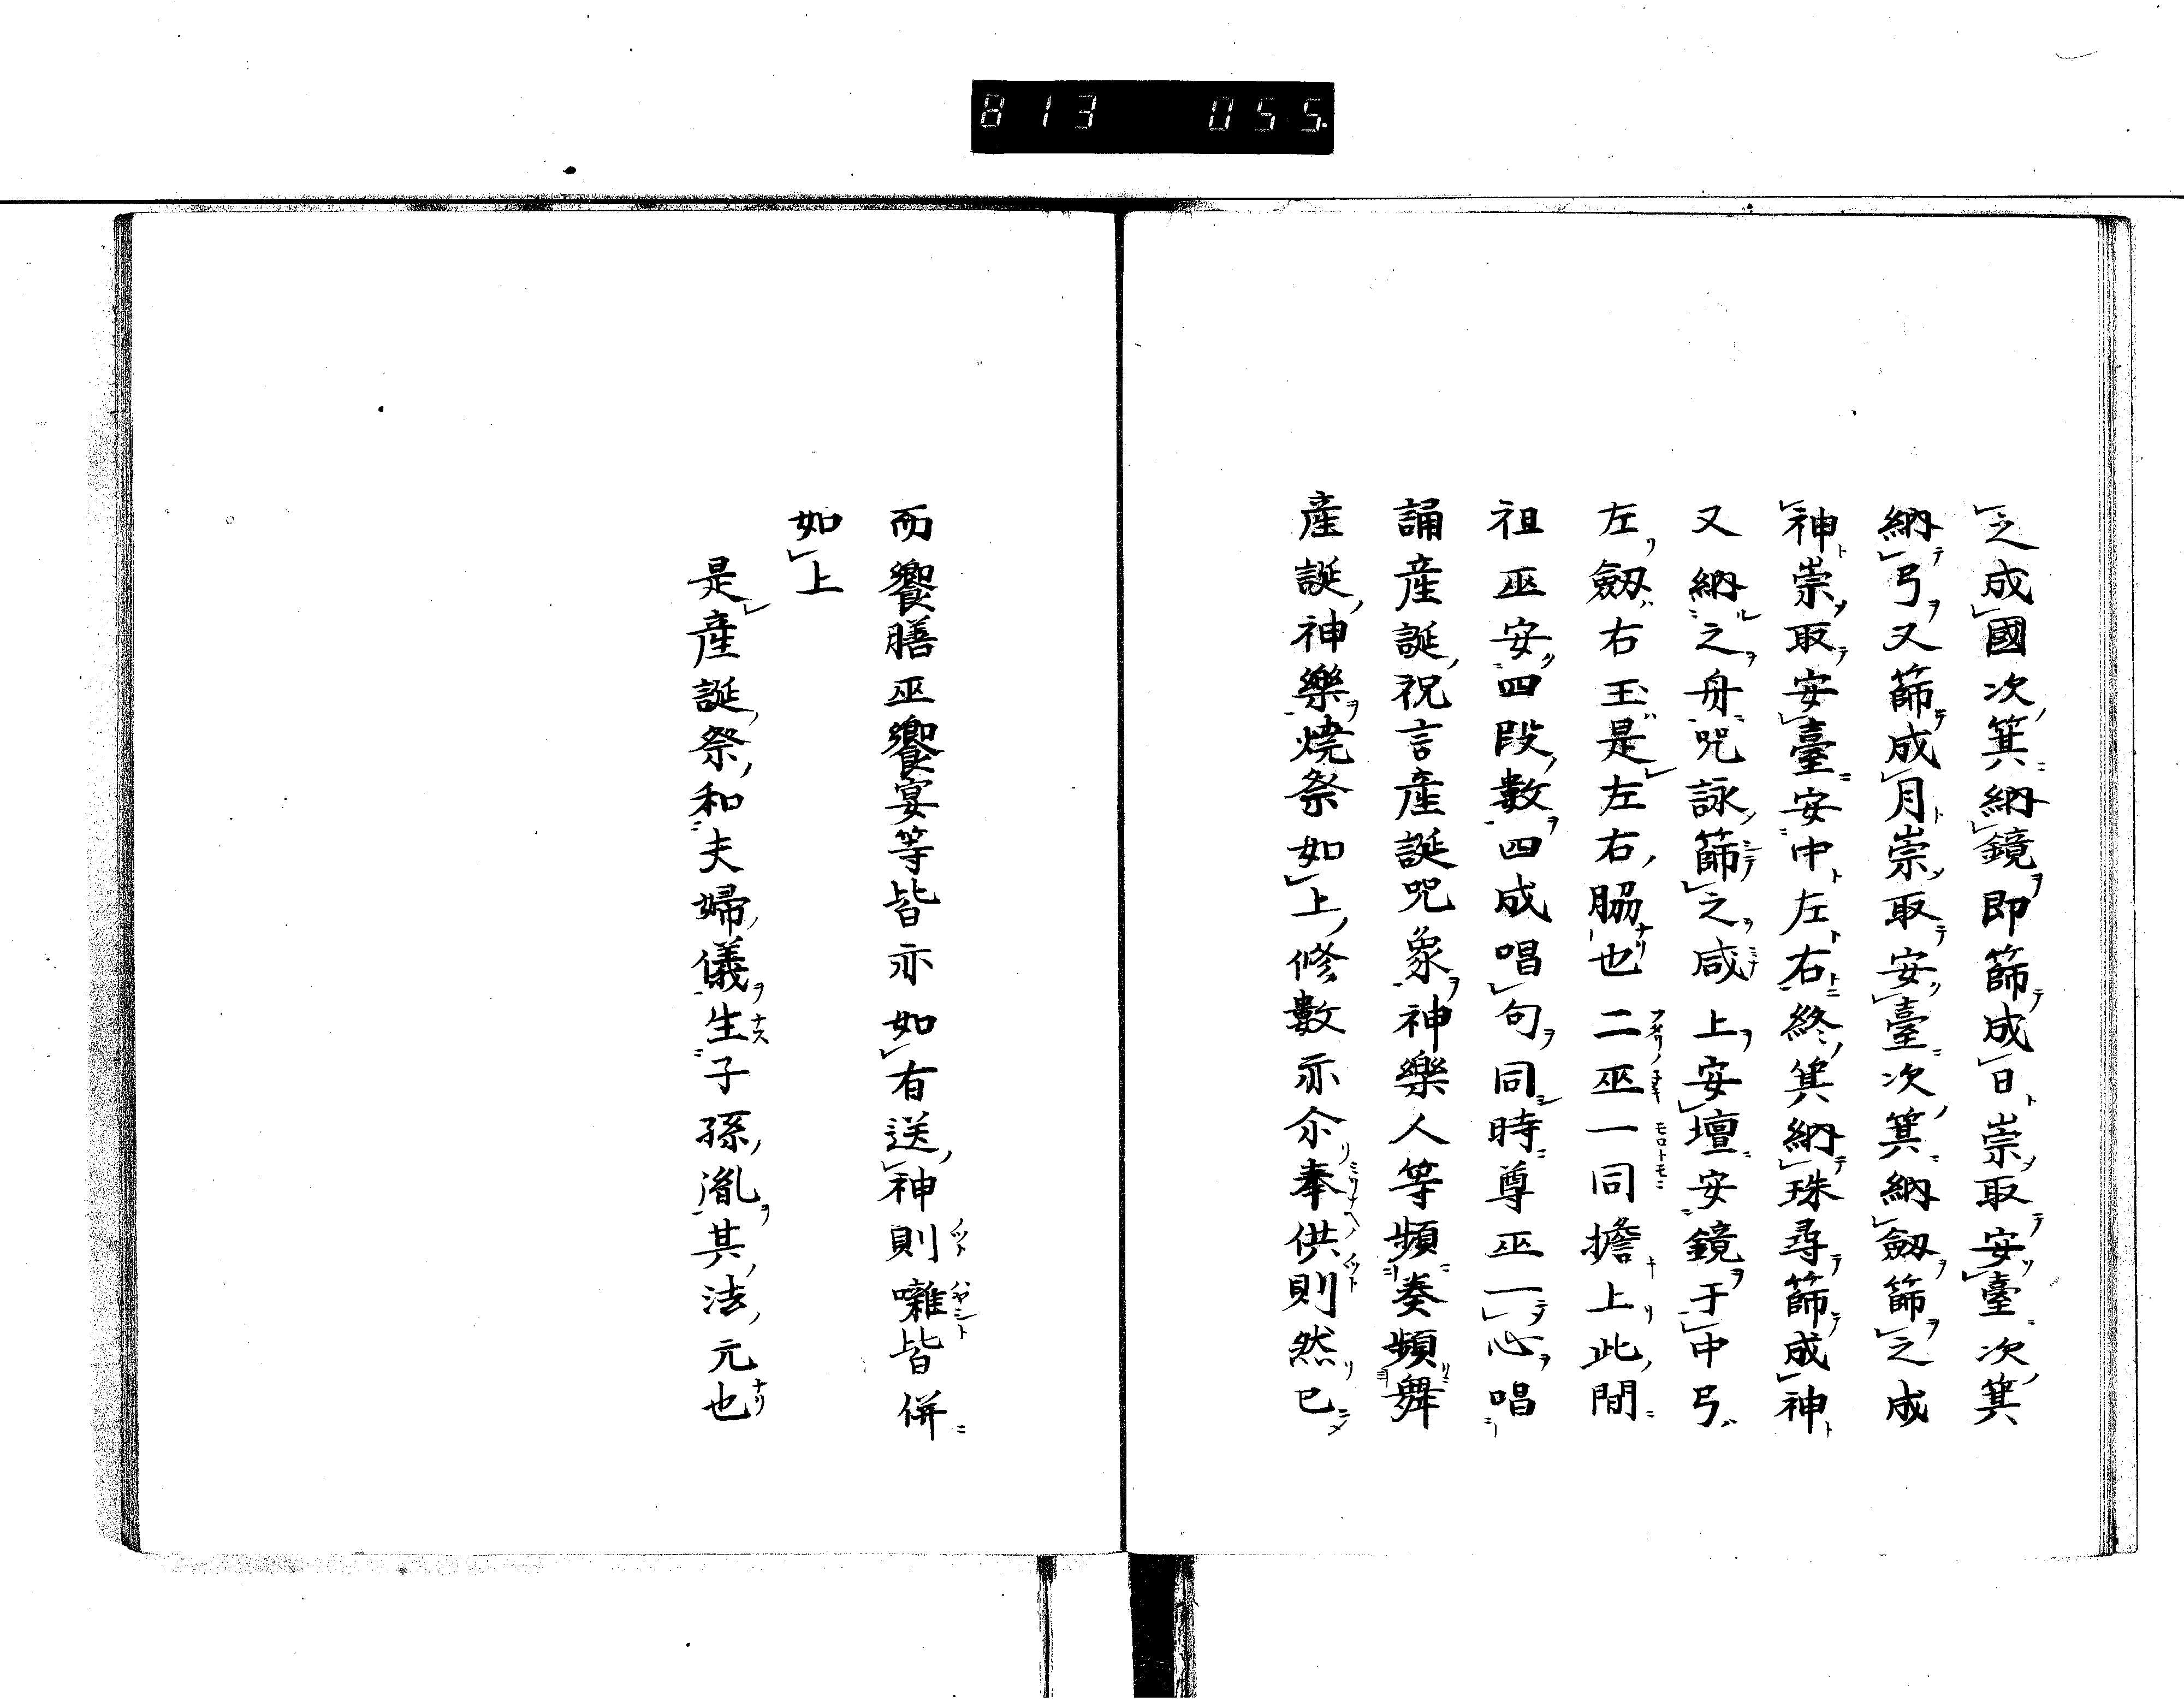 813 055.
之成國次箕納鏡即篩成日崇取安臺次箕
納弓又篩成月崇取安臺次箕納劔篩之成
神崇取安臺安中左右終箕納珠尋篩成神
又納之舟咒詠篩之咸上安壇安鏡于中弓
左劔右玉是左右脇也二巫一同擔上此間
祖巫安四段數四成唱句同時尊巫一心唱
誦產誕祝言產誕咒象神樂人等頻奏頻舞
產誕神樂燒祭如上修數亦尒奉供則然已
而饗膳巫饗宴等皆亦如有送神則囃皆併
如上
是產誕祭和夫婦儀生子孫胤其法元也